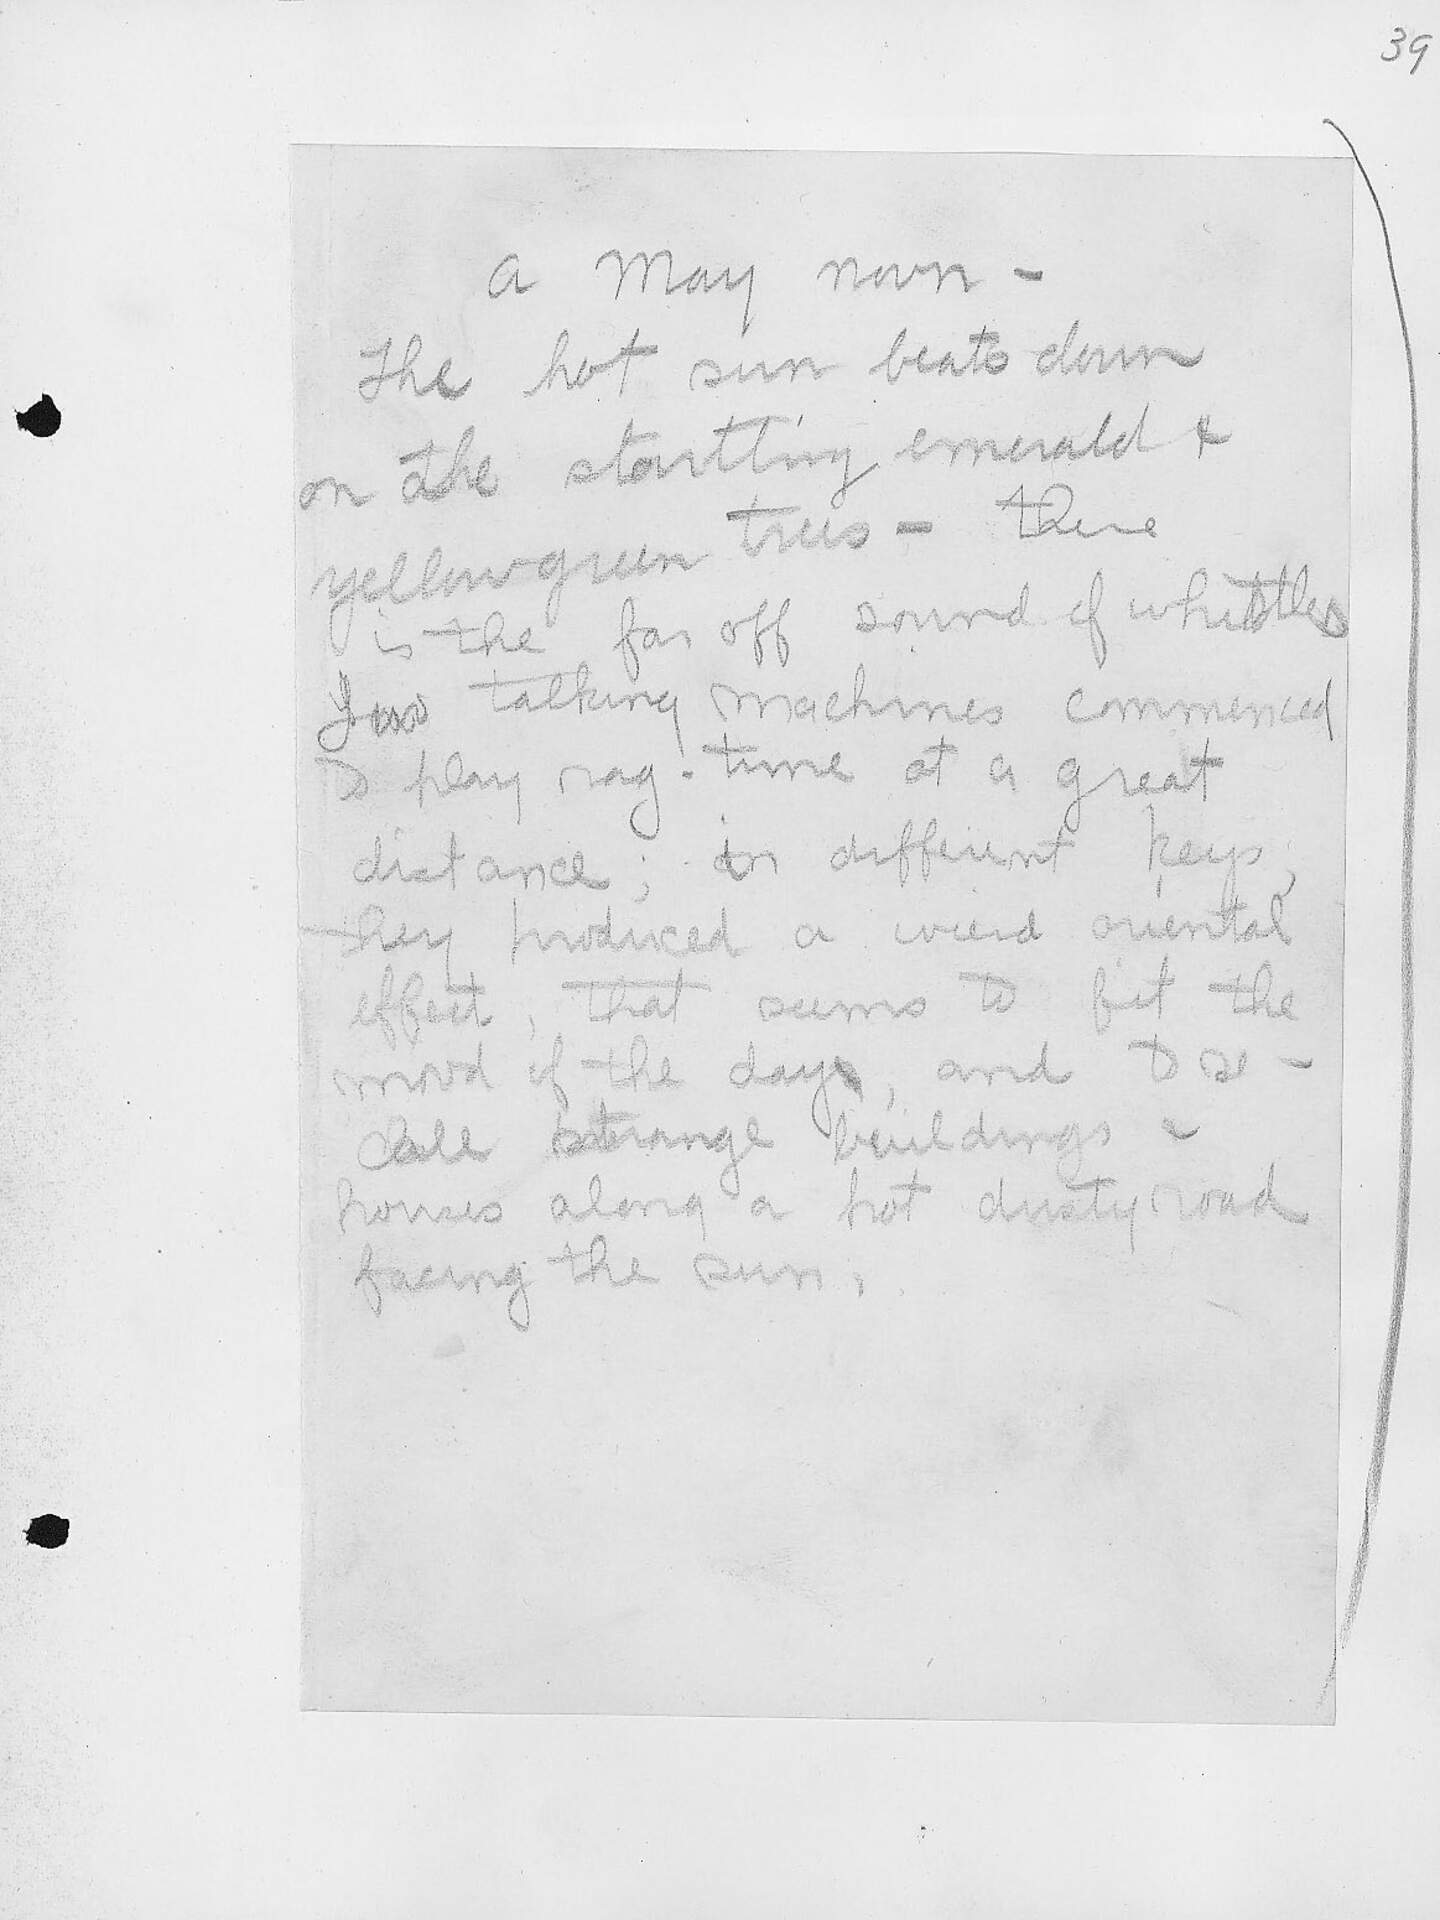 39
A May noon -
The hot sun beats down
on the startling emerald &
yellowgreen trees - there
is the far off sound of whistles
Two talking machines commenced
to play rag-time at a great
distance; in different keys;
they produced a wierd oriental
effect, that seems to fit the
mood of the day, and to re-
call strange buildings -
houses along a hot dusty road
facing the sun.